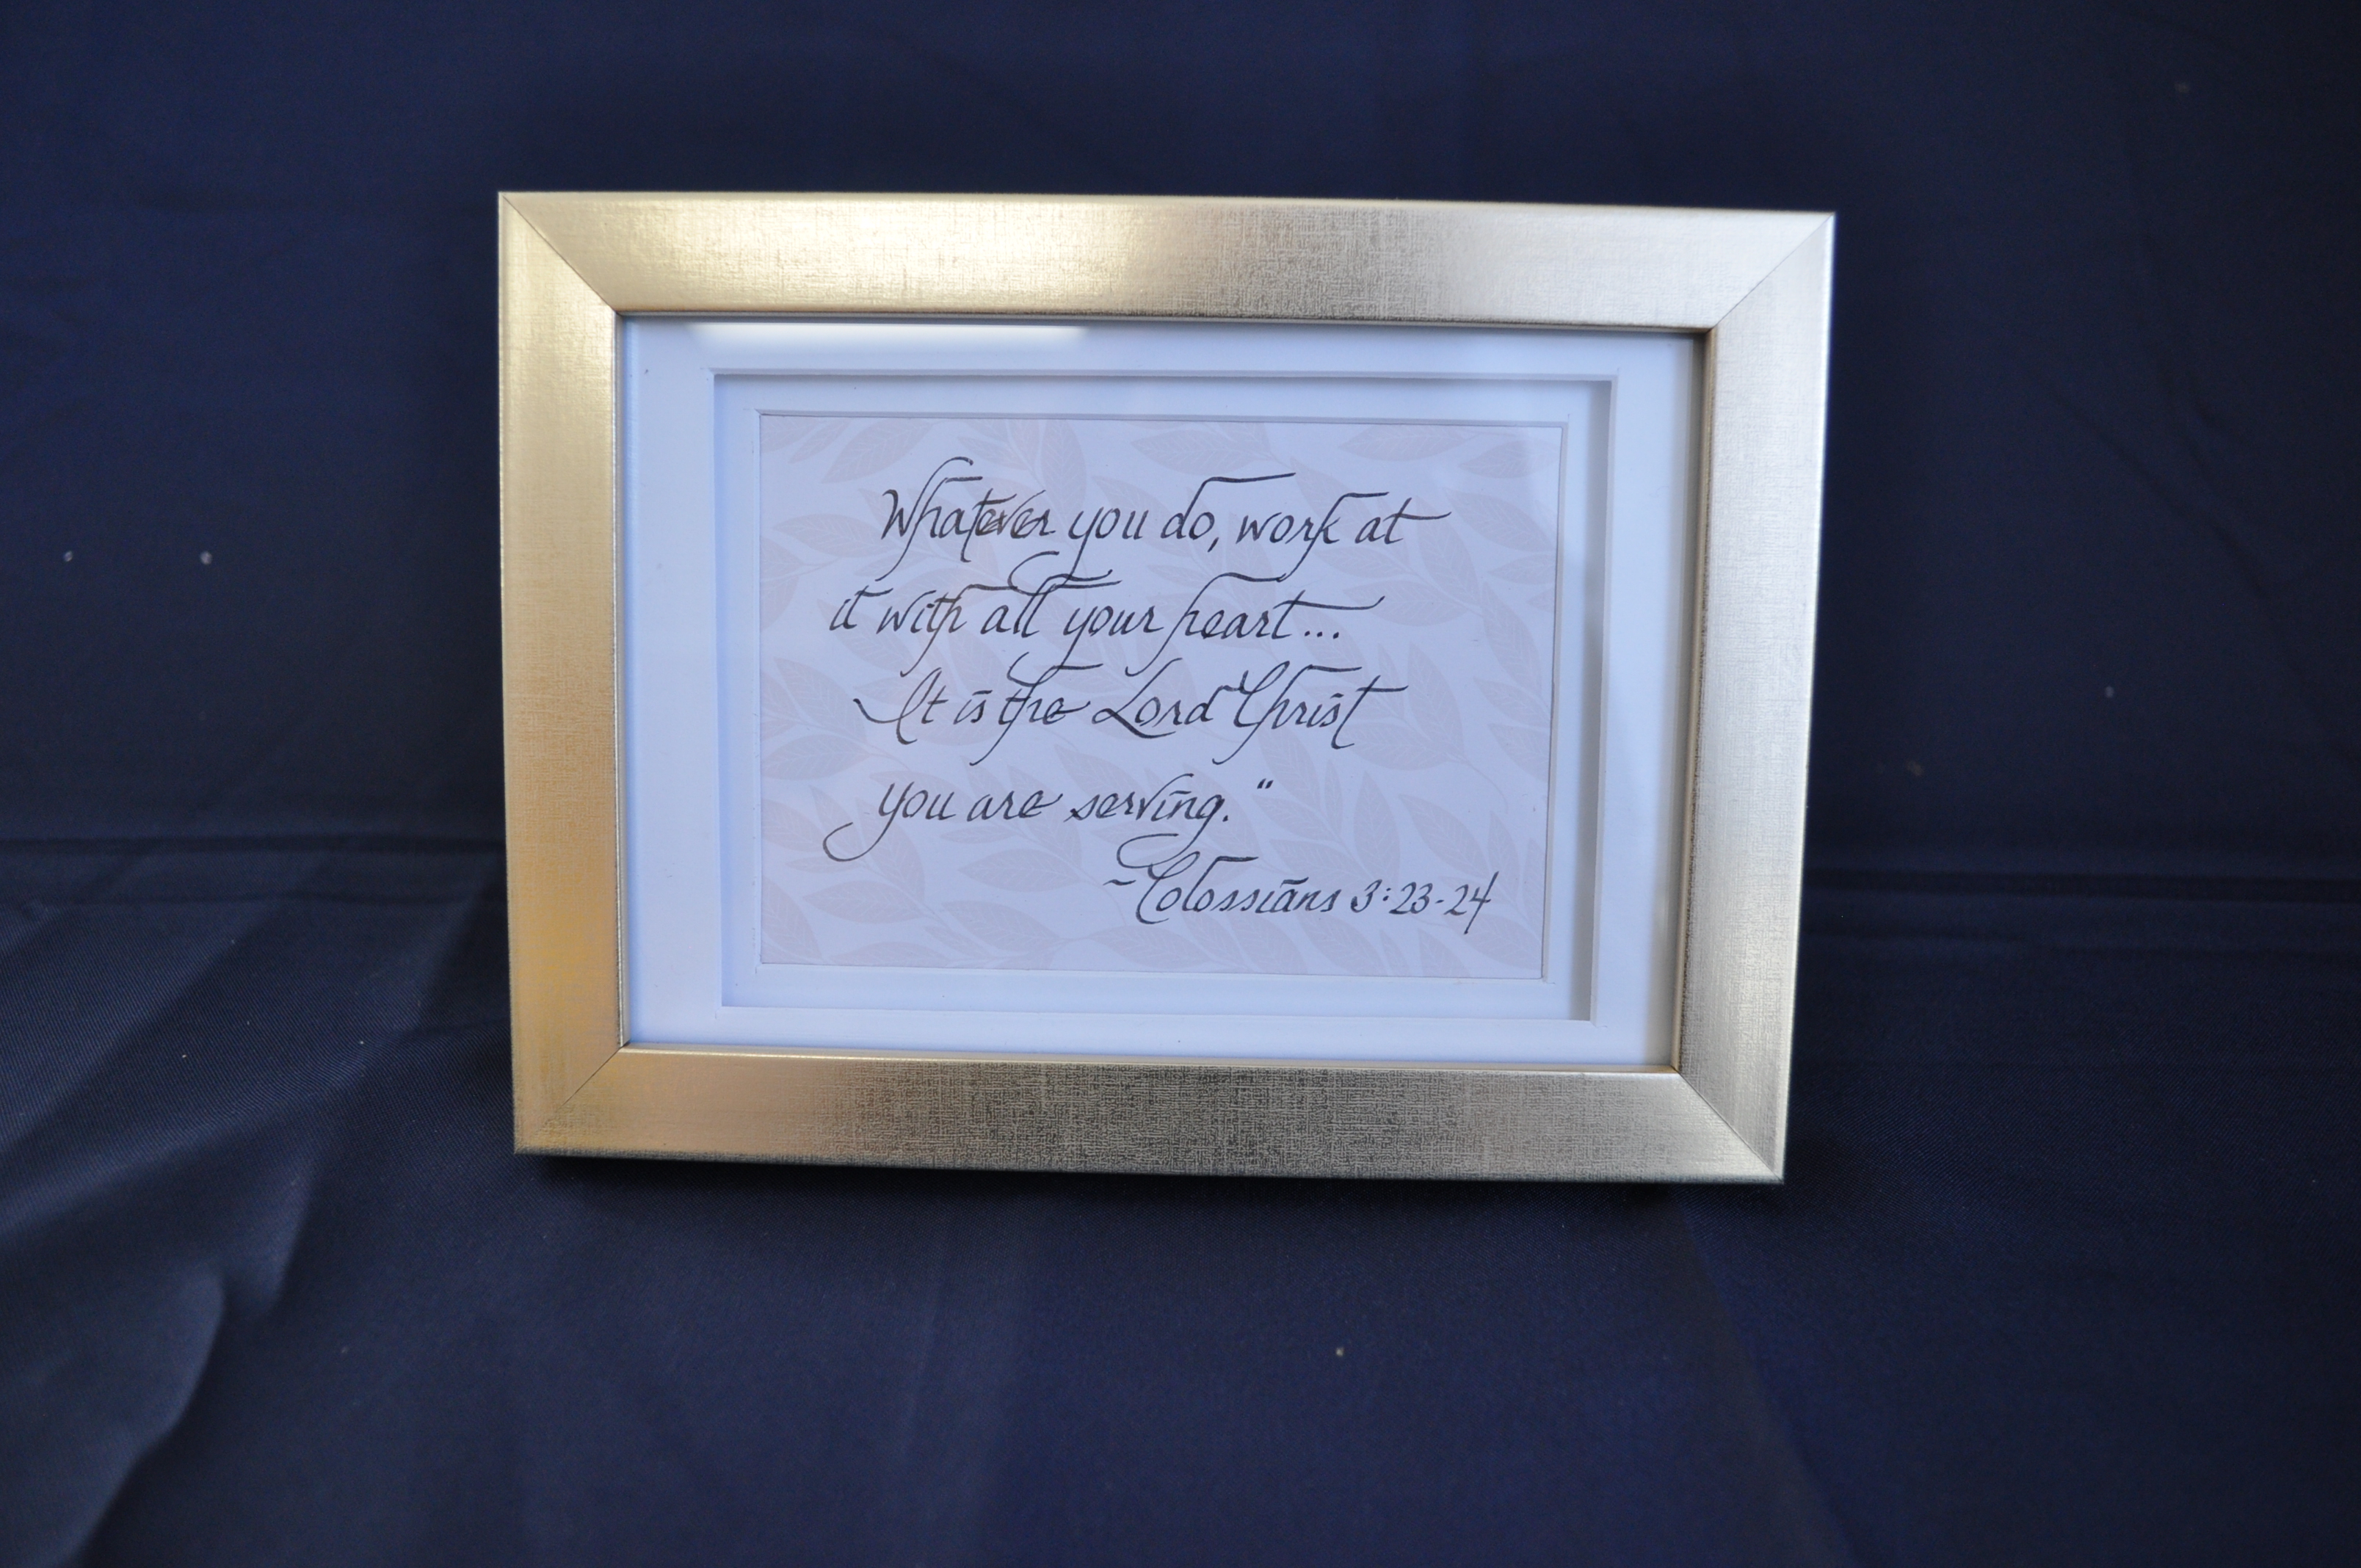 Whatever you do, work at
it with all your heart...
It is the Lord Christ
you are serving."
~Colossians 3:23-24